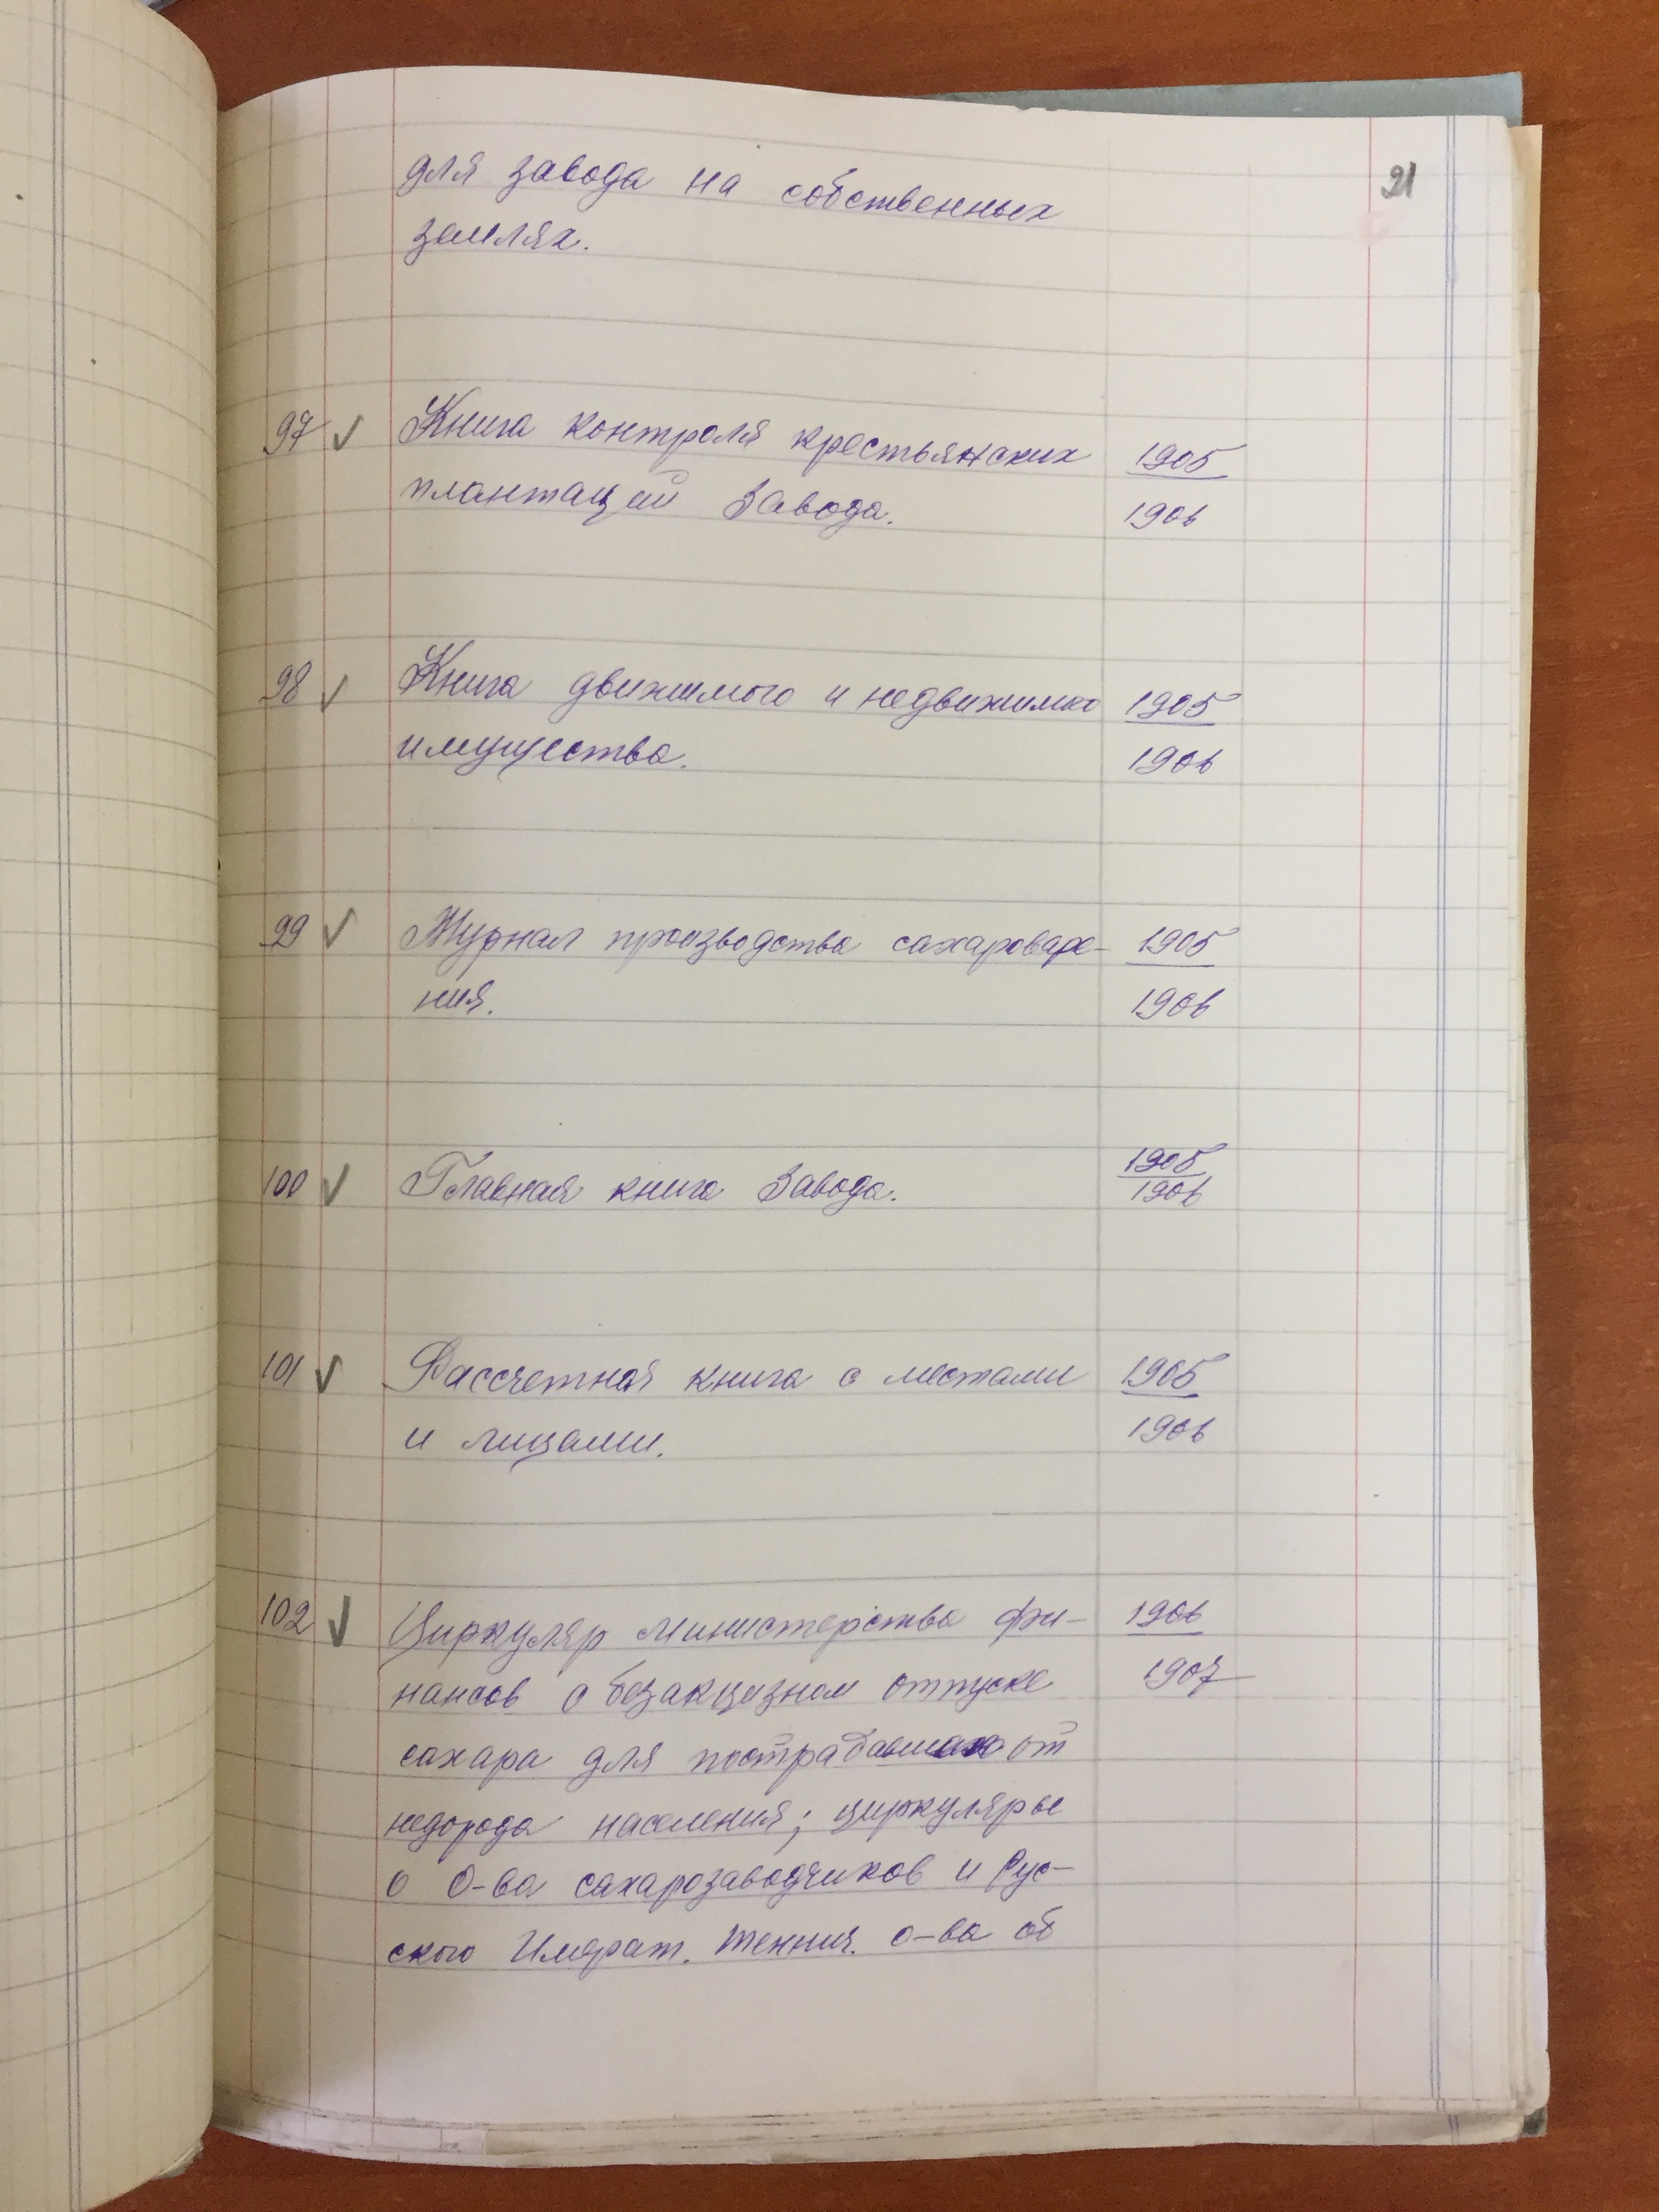 21
для завода на собственных
землях.
97 ✓ Книга контроля крестьянских 1905
плантаций завода. 1906
98 ✓ Книга движимого и недвижимго 1905
имущества. 1906
99 ✓ Журнал производства сахароваре- 1905
ния. 1906
100 ✓ Главная книга завода. 1905
1906
101 ✓ Рассчетная книга с местами 1905
и лицами. 1906
102 ✓ Циркуляр министерства фи- 1906
нансов о безакцизном отпуске 1907
сахара для пострадавшего от
недорода населения; циркуляры
о О-ва сахарозаводчиков и Рус-
ского Имерат. технич. о-ва об